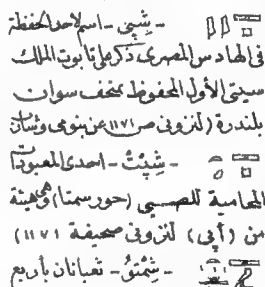 - شِپِي - اسم لأحد الحفظة
فى الهادس المصرى ذكر على تابوت الملك
سيتى الأول المحفوظ بمتحف سوان
بلندرة (لنزونى ص ١١٧١ عن بنومى وشارل
- شِپِتْ - احدى المعبودات
المحامية للصبى (حورسمتا) وهى هيئة
من (أپى) لنزونى صحيفة ١١٧١)
- شِمْتُو - ثعبانان بأربع